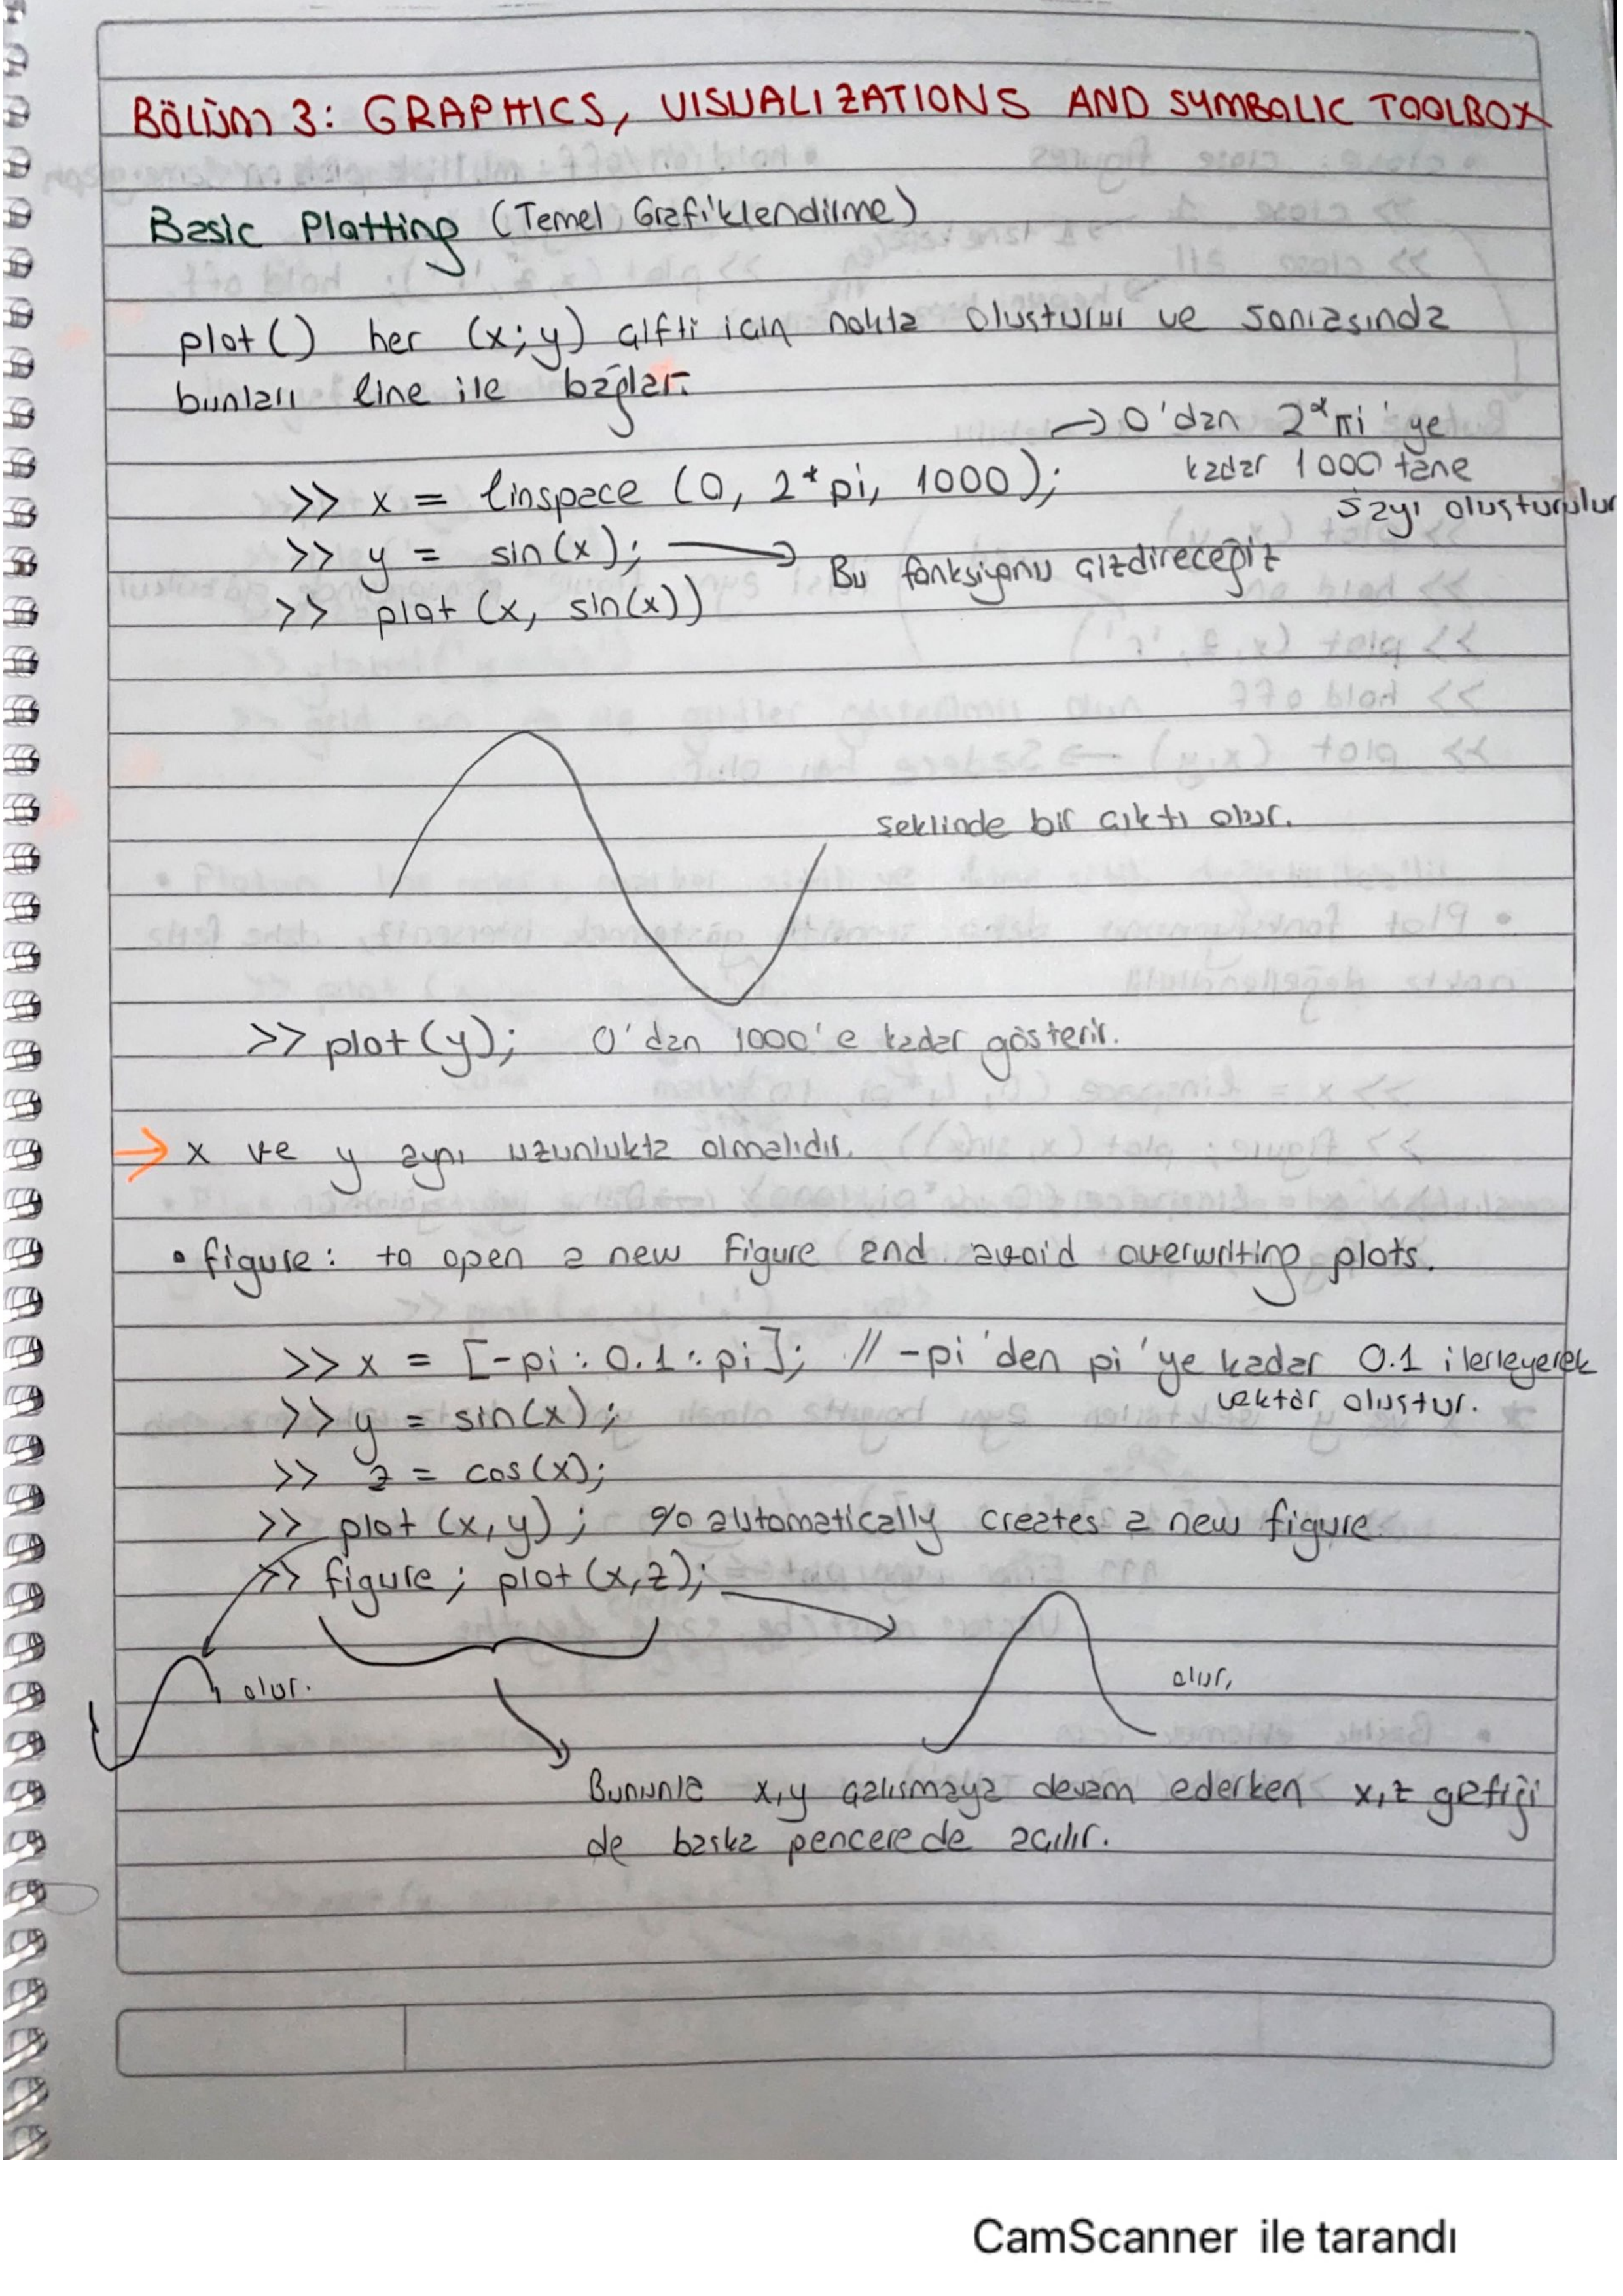 BÖLÜM 3: GRAPHICS, VISUALIZATIONS AND SYMBOLIC TOOLBOX
Basic Plotting (Temel Grafiklendirme)
plot() her (x;y) çifti için nokta oluşturur ve sonrasında
bunları line ile bağlar.
→ 0'dan 2*pi'ye
kadar 1000 tane
sayı oluşturulur
>> x = linspace (0, 2*pi, 1000);
>> y = sin(x); → Bu fonksiyonu çizdireceğiz
>> plot (x, sin(x))
şeklinde bir çıktı olur.
>> plot(y); 0'dan 1000'e kadar gösterir.
→ x ve y aynı uzunlukta olmalıdır.
• figure: to open a new Figure and avoid overwriting plots.
>> x = [-pi : 0.1 : pi]; // -pi'den pi'ye kadar 0.1 ilerleyerek
vektör oluştur.
>> y = sin(x);
>> z = cos(x);
>> plot (x,y); % automatically creates a new figure.
>> figure; plot(x,z);
olur.
olur.
Bununla x,y çalışmaya devam ederken x,z grafiği
de başka pencerede açılır.
CamScanner ile tarandı